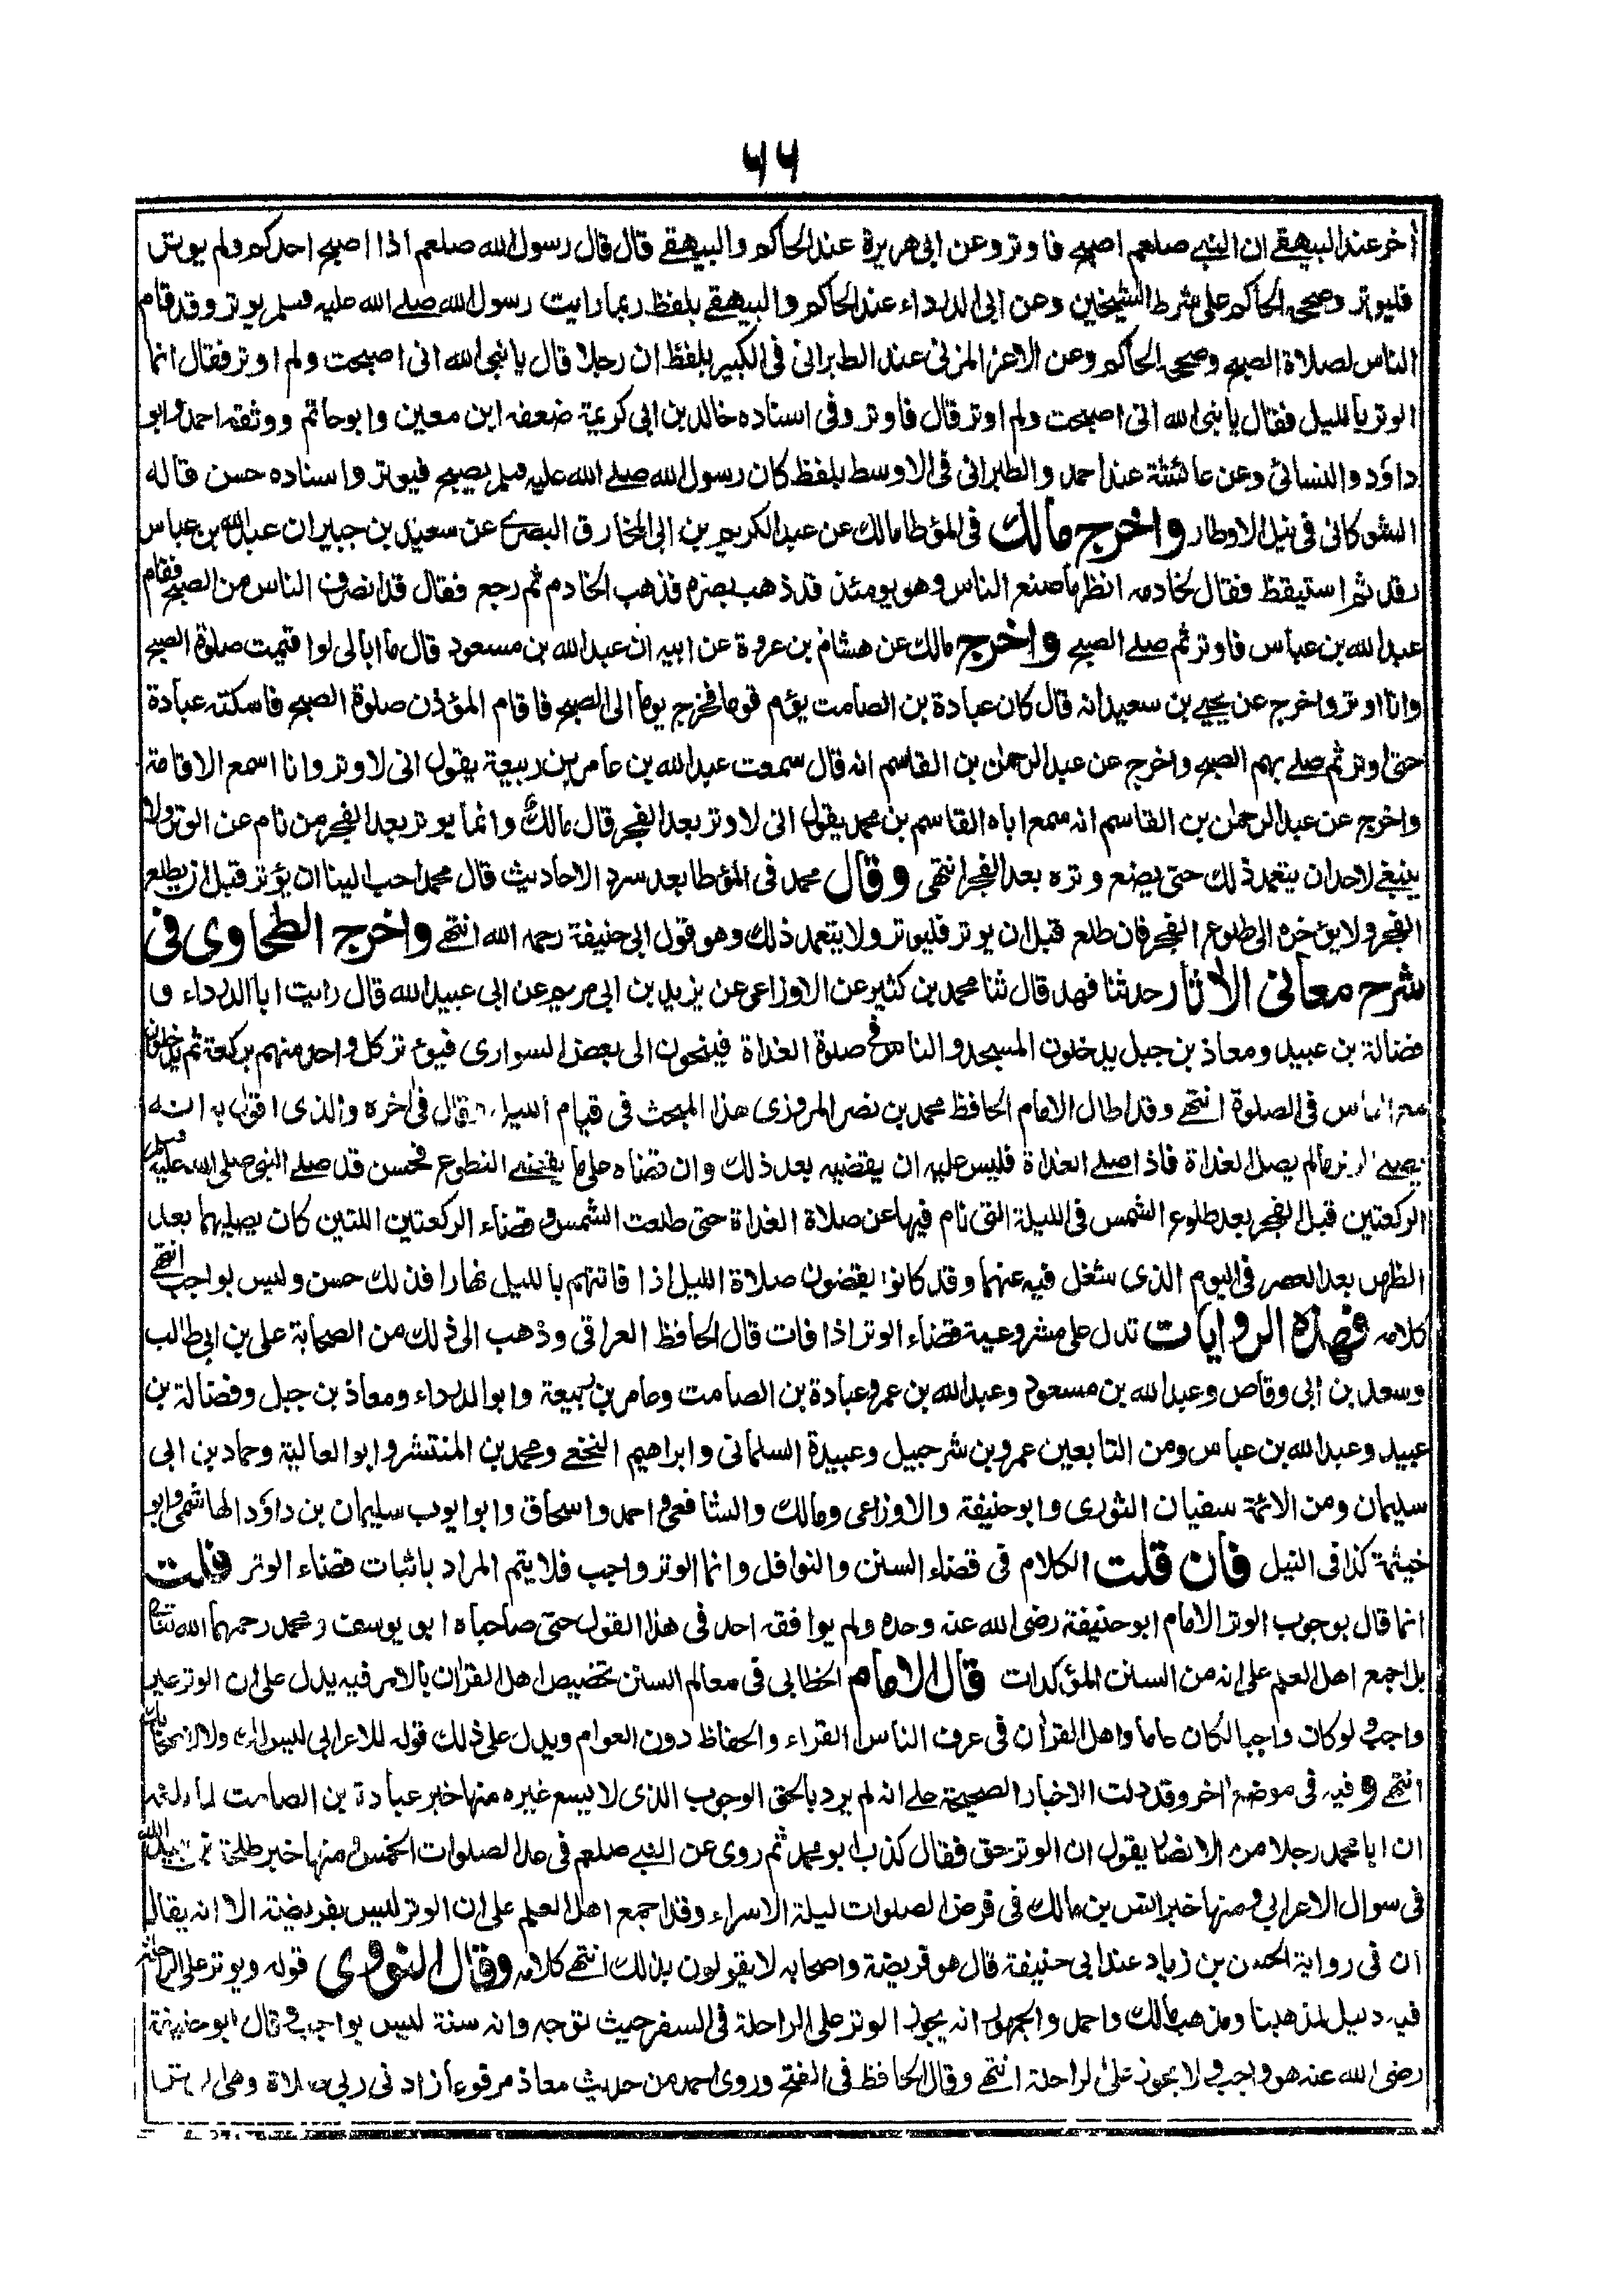 ٦٦
اخر عند البيهقي ان النبي صلعم اصبح فاوتر وعن ابي هريرة عند الحاكم والبيهقي قال قال رسول الله صلعم اذا اصبح احدكم ولم يوتر
فليوتر وصححه الحاكم على شرط الشيخين وعن ابي الدرداء عند الحاكم والبيهقي بلفظ ربما رايت رسول الله صلى الله عليه وسلم يوتر وقد قام
الناس لصلاة الصبح وصححه الحاكم وعن الاغر المزني عند الطبراني في الكبير بلفظ ان رجلا قال يا نبي الله اني اصبحت ولم اوتر فقال انما
الوتر بالليل فقال يا نبي الله اني اصبحت ولم اوتر قال فاوتر وفي اسناده خالد بن ابي كريمة ضعفه ابن معين وابوحاتم ووثقه احمد وابو
داود والنسائي وعن عائشة عند احمد والطبراني في الاوسط بلفظ كان رسول الله صلى الله عليه وسلم يصبح فيوتر واسناده حسن قاله
الشوكاني في نيل الاوطار واخرج مالك في المؤطا مالك عن عبد الكريم بن ابي المخارق البصري عن سعيد بن جبير ان عبد الله بن عباس
رقد ثم استيقظ فقال لخادمه انظر ما صنع الناس وهو يومئذ قد ذهب بصره فذهب الخادم ثم رجع فقال قد انصرف الناس من الصبح فقام
عبد الله بن عباس فاوتر ثم صلى الصبح واخرج مالك عن هشام بن عروة عن ابيه ان عبد الله بن مسعود قال ما ابالي لو اقيمت صلوة الصبح
وانا اوتر واخرج عن يحيى بن سعيد انه قال كان عبادة بن الصامت يؤم قوما فخرج يوما الى الصبح فاقام المؤذن صلوة الصبح فاسكته عبادة
حتى اوتر ثم صلى بهم الصبح واخرج عن عبد الرحمن بن القاسم انه قال سمعت عبد الله بن عامر بن ربيعة يقول اني لاوتر وانا اسمع الاقامة
واخرج عن عبد الرحمن بن القاسم انه سمع اباه القاسم بن محمد يقول اني لاوتر بعد الفجر قال مالك وانما يوتر بعد الفجر من نام عن الوتر ولا
ينبغي لاحد ان يتعمد ذلك حتى يضع وتره بعد الفجر انتهى وقال محمد في المؤطا بعد سرد الاحاديث قال محمد احب الينا ان يؤتر قبل ان يطلع
الفجر ولا يؤخره الى طلوع الفجر فان طلع قبل ان يوتر فليوتر ولا يتعمد ذلك وهو قول ابي حنيفة رحمه الله انتهى واخرج الطحاوي في
شرح معاني الاثار حدثنا فهد قال ثنا محمد بن كثير عن الاوزاعي عن يزيد بن ابي مريم عن ابي عبيد الله قال رايت ابا الدرداء و
فضالة بن عبيد ومعاذ بن جبل يدخلون المسجد والناس في صلوة الغداة فينحون الى بعض السواري فيؤتر كل واحد منهم بركعة ثم يدخلون
مع الناس في الصلوة انتهى وقد اطال الامام الحافظ محمد بن نصر المروزي هذا المبحث في قيام الليل فقال في اخره والذي اقول به انه
يصلي الوتر مالم يصل الغداة فاذا صلى الغداة فليس عليه ان يقضيه بعد ذلك وان قضاه على ما يقضى التطوع فحسن قد صلى النبي صلى الله عليه وسلم
الركعتين قبل الفجر بعد طلوع الشمس في الليلة التي نام فيها عن صلاة الغداة حتى طلعت الشمس وقضاء الركعتين اللتين كان يصليهما بعد
الظهر بعد العصر في اليوم الذي شغل فيه عنهما وقد كانوا يقضون صلاة الليل اذا فاتتهم بالليل نهارا فذلك حسن وليس بواجب انتهى
كلامه فهذه الروايات تدل على مشروعية قضاء الوتر اذا فات قال الحافظ العراقي وذهب الى ذلك من الصحابة علي بن ابي طالب
وسعد بن ابي وقاص وعبد الله بن مسعود وعبد الله بن عمر وعبادة بن الصامت وعامر بن ربيعة وابو الدرداء ومعاذ بن جبل وفضالة بن
عبيد وعبد الله بن عباس ومن التابعين عمرو بن شرحبيل وعبيدة السلماني وابراهيم النخعي ومحمد بن المنتشر وابو العالية وحماد بن ابي
سليمان ومن الائمة سفيان الثوري وابوحنيفة والاوزاعي ومالك والشافعي واحمد واسحاق وابو ايوب سليمان بن داود الهاشمي وابو
خيثمة كذا في النيل فان قلت الكلام في قضاء السنن والنوافل وانما الوتر واجب فلا يتم المراد باثبات قضاء الوتر قلت
انما قال بوجوب الوتر الامام ابوحنيفة رضي الله عنه وحده ولم يوافقه احد في هذا القول حتى صاحباه ابو يوسف ومحمد رحمهما الله تعالى
بل اجمع اهل العلم على انه من السنن المؤكدات قال الامام الخطابي في معالم السنن تخصيص اهل القران بالامر فيه يدل على ان الوتر غير
واجب ولو كان واجبا لكان عاما واهل القرآن في عرف الناس القراء والحفاظ دون العوام ويدل على ذلك قوله للاعرابي ليس لك ولا لاصحابك
انتهى وفيه في موضع اخر وقد دلت الاخبار الصحيحة على انه لم يرد بالحق الوجوب الذي لا يسع غيره منها خبر عبادة بن الصامت لما بلغه
ان ابا محمد رجلا من الانصار يقول ان الوتر حق فقال كذب ابو محمد ثم روى عن النبي صلعم في عدد الصلوات الخمس ومنها خبر طلحة بن عبيد الله
في سوال الاعرابي ومنها خبر انس بن مالك في فرض الصلوات ليلة الاسراء وقد اجمع اهل العلم على ان الوتر ليس بفريضة الا انه يقال
ان في رواية الحسن بن زياد عند ابي حنيفة قال هو فريضة واصحابه لا يقولون بذلك انتهى كلامه وقال النووي قوله ويوتر على الراحلة
فيه دليل لمذهبنا ومذهب مالك واحمد والجمهور انه يجوز الوتر على الراحلة في السفر حيث توجه وانه سنة ليس بواجب وقال ابوحنيفة
رضي الله عنه هو واجب ولا يجوز على الراحلة انتهى وقال الحافظ في الفتح وروى احمد من حديث معاذ مرفوعا زادني ربي صلاة وهي الوتر